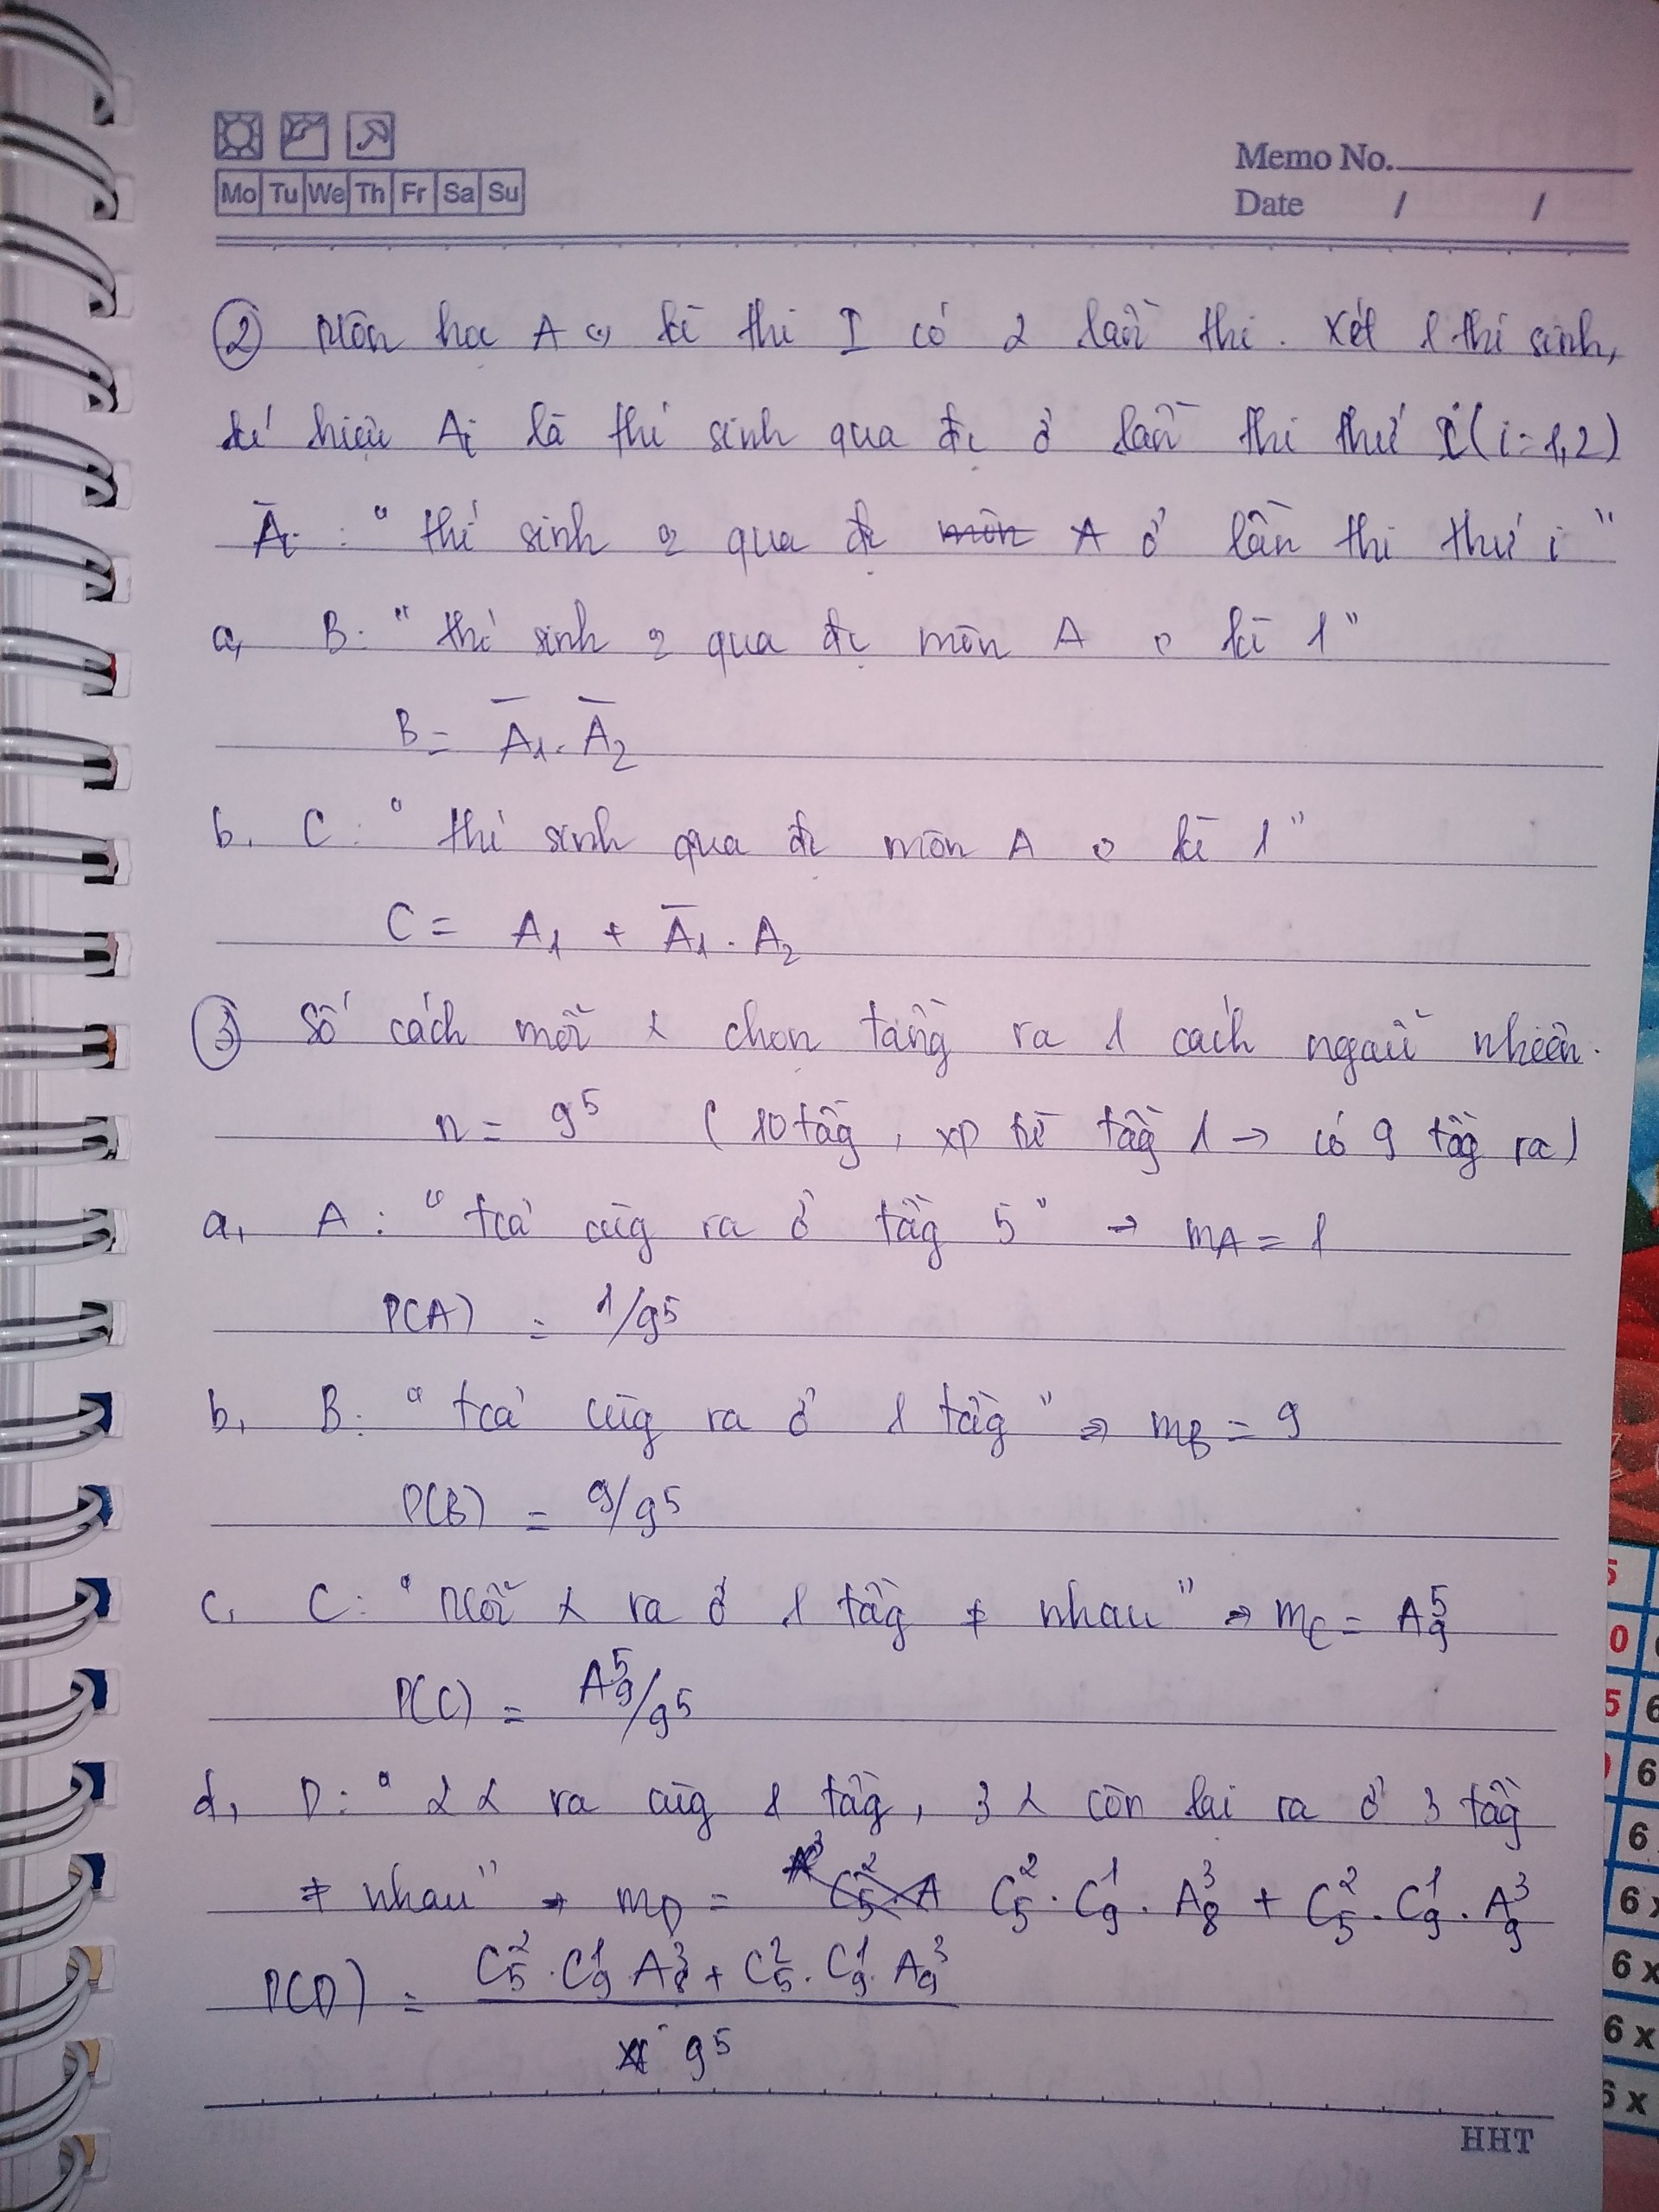 Mo Tu We Th Fr Sa Su
Memo No.
Date / /
② Môn học A kì thi I có 2 lần thi. Xét 1 thí sinh,
kí hiệu Ai là thí sinh qua đc ở lần thi thứ i (i=1,2)
Āi : "thí sinh qua đc môn A ở lần thi thứ i"
a, B: "thí sinh qua đc môn A ở kì 1"
B = Ā₁.Ā₂
b. C: "thí sinh qua đc môn A ở kì 1"
C = A₁ + Ā₁.A₂
③ Số cách mỗi chọn tầng ra 1 cách ngẫu nhiên.
n = 9⁵ (10 tầg, xp từ tầg 1 → có 9 tầg ra)
a, A: "tcả cùg ra ở tầg 5" → mA = 1
P(A) = 1/9⁵
b, B: "tcả cùg ra ở 1 tầg" → mB = 9
P(B) = 9/9⁵
c, C: "Mỗi ra ở 1 tầg ≠ nhau" → mC = A⁵₉
P(C) = A⁵₉/9⁵
d, D: "2 ra cùg 1 tầg, 3 còn lại ra ở 3 tầg
≠ nhau" → mD = C²₅.C¹₉.A³₈ + C²₅.C¹₉.A³₉
P(D) = C²₅.C¹₉.A³₈ + C²₅.C¹₉.A³₉
9⁵
HHT
5
0 6
5 6
6
6
6 x
6 x
6 x
6 x